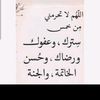 اللهم لا تحرمني
من خمس
سترك، وعفوك
ورضاك، وحُسن
الخاتمة، والجنة